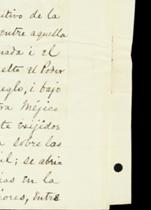 utivo de la
entre aquella
nada i el
elto el Poder
eglo, i bajo
ra Méjico
te exijidos
a sobre las
il; se abria
ias en la
iores, entre